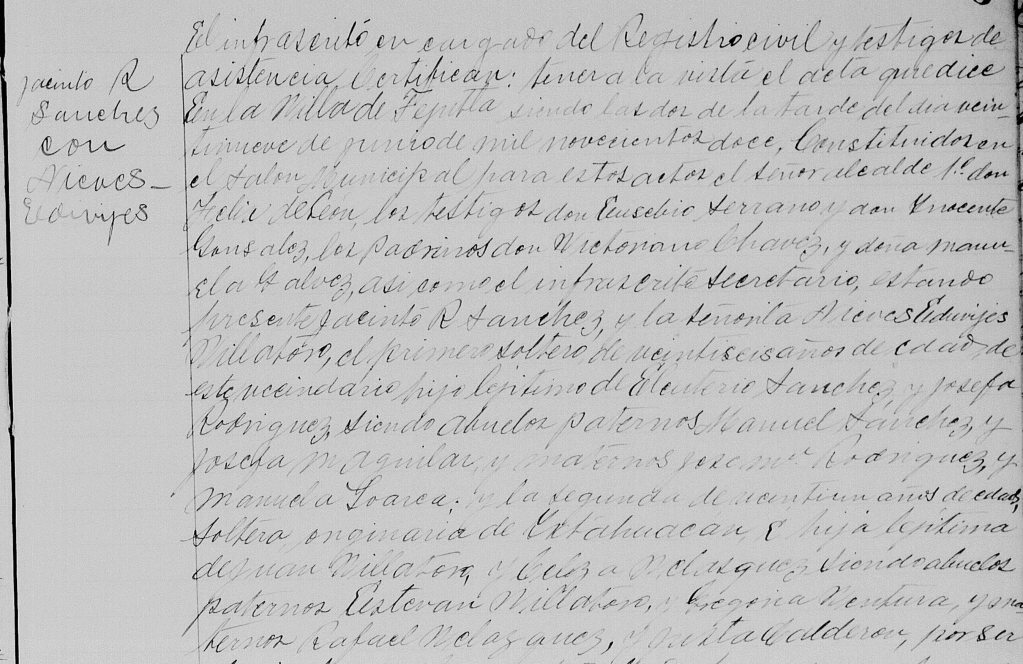 Jacinto R
Sanchez
con
Nieves-
Edivijes
El infrascrito encargado del Registro civil y testigos de
asistencia Certifican: tener a la vista el acta que dice
En la Villa de siendo las dos de la tarde del dia vein-
tinueve de junio de mil novecientos doce, Constituidos en
el salon Municipal para estos actos el señor alcalde 1º don
Felix de Leon, los testigos don Eusebio Serrano y don Ynocente
Gonsalez, los padrinos don Victoriano Chavez, y doña manu-
ela Galvez, asi como el infrascrito secretario, estando
presente Jacinto R Sanchez, y la señorita Nieves Edivijes
Villatoro, el primero soltero de veintiseis años de edad, de
este vecindario hijo legitimo de Eleuterio Sanchez y Josefa
Rodriguez, siendo abuelos paternos Manuel Sanchez, y
Josefa M Aguilar, y maternos Jose Mª Rodriguez, y
Manuela Loarca; y la segunda de veintiun años de edad,
soltera, originaria de Ixtahuacan, é hija legitima
de Juan Villatoro, y Velasquez siendo abuelos
paternos Estevan Villatoro, y Gregoria Ventura, y ma-
ternos Rafael Velazquez, y Calderon, por ser